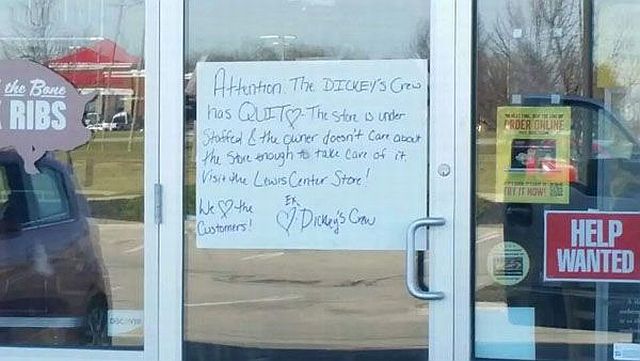 the Bone
RIBS
Attention: The DICKEY'S Crew
has QUIT♡. The store is under
Staffed & the owner doesn't care about
the store enough to take care of it.
Visit the Lewis Center Store!
We ♡ the
Customers!
EX
♡-Dickey's Crew
ORDER ONLINE
TRY IT NOW!
HELP
WANTED
DISCOVER